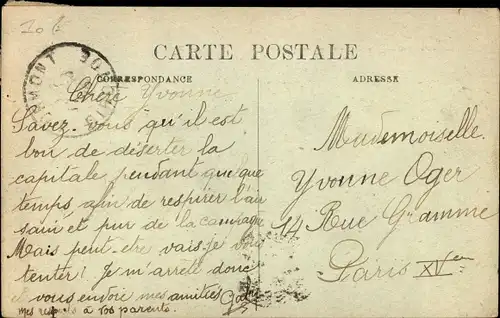 CARTE POSTALE
CORRESPONDANCE
ADRESSE
Chère Yvonne
Savez-vous qu'il est
bon de déserter la
capitale pendant quelque
temps afin de respirer l'air
sain et pur de la campagne
Mais peut-être vais-je vous
tenter! Je m'arrête donc
et vous envoie mes amitiés
mes respects à vos parents.
Mademoiselle
Yvonne Oger
14 Rue Gramme
Paris XVe